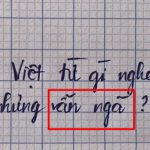 Việt từ gì nghe
chứng vấn ngã ?